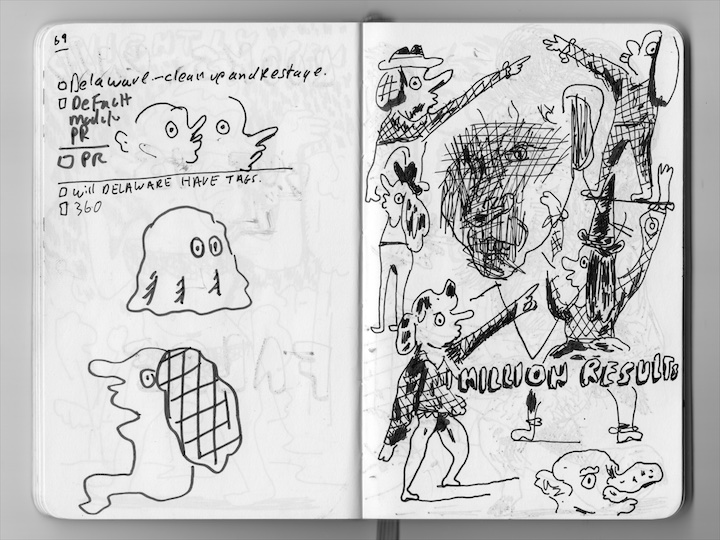 69
Delaware - clean up and Restage.
Default
PR
PR
Will DELAWARE HAVE TAGS.
360
MILLION RESULTS